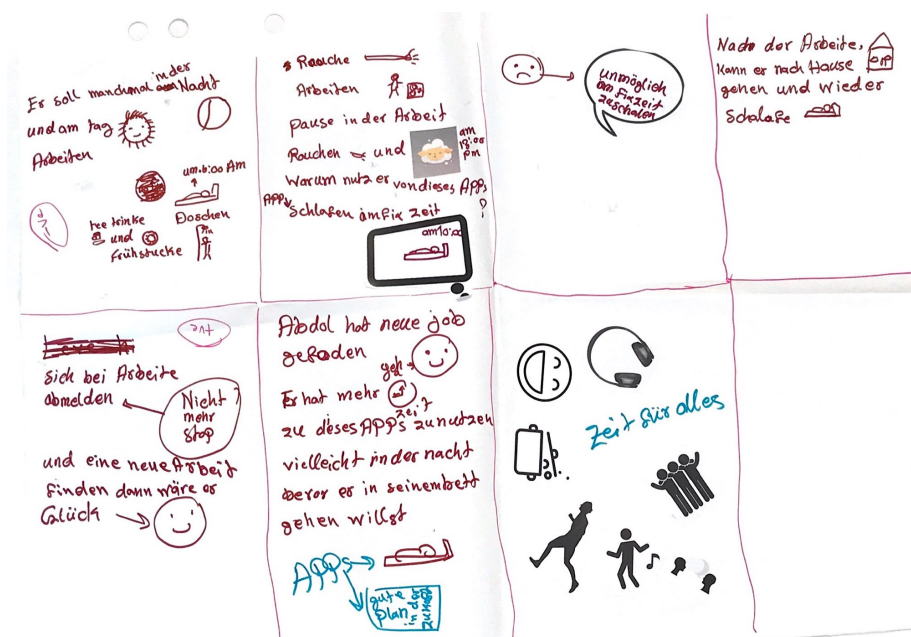 Er soll manchmal in der Nacht
und am tag
Arbeiten
um 6:00 Am
Doschen
tee trinke
und
Frühstucke
Rauche
Arbeiten
pause in der Arbeit
Rauchen und
am
13:00
pm
Warum nutz er von dieses APPs
?
APPs
Schlafen am Fix zeit
am 10:00
unmöglich
am Fixzeit
zuschafen
Nach der Arbeite,
kann er nach Hause
gehen und wieder
Schalafe
sich bei Arbeite
abmelden
Nicht
mehr
Stop
und eine neue Arbeit
finden dann wäre er
Glück
Abdol hat neue job
gefoden
Er hat mehr
zeit
zu dieses APPs zu nutzen
vielleicht in der nacht
bevor er in seinem bett
gehen willst
APPs
gute
plan
in der
Zeit für alles